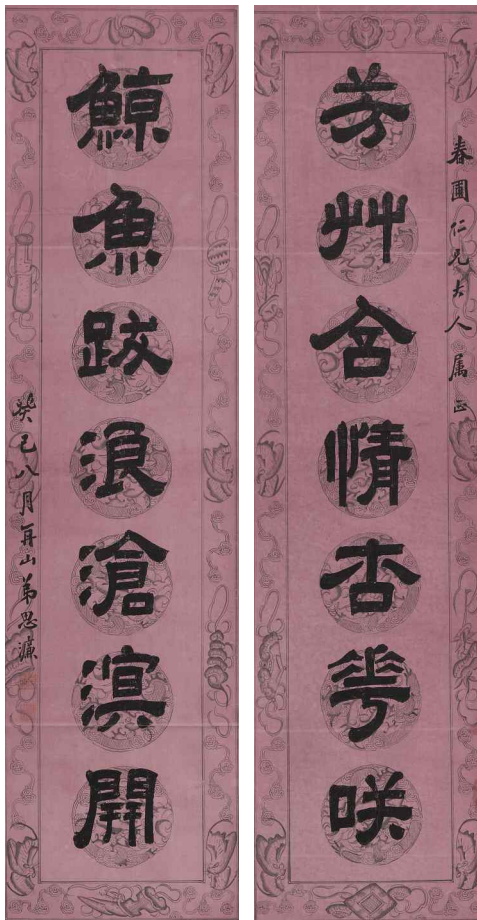 春圃仁兄大人属正
芳艸含情杏華咲
鯨魚跋浪滄溟開
癸巳八月再山弟思濂